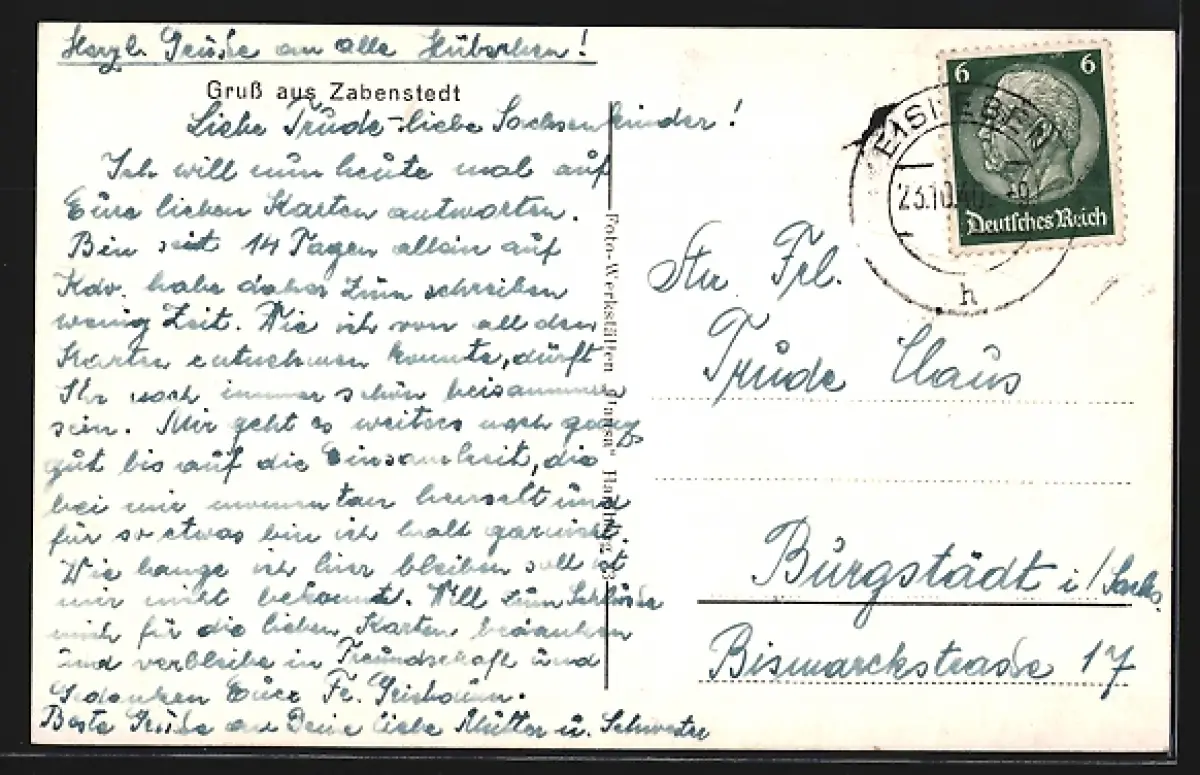 Herzl. Grüße an alle Hübschen!
Gruß aus Zabenstedt
Liebe Trude - liebe Sachsenkinder!
Ich will nun heute mal auf
Eure lieben Karten antworten.
Bin seit 14 Tagen allein auf
Kdv. habe daher zum schreiben
wenig Zeit. Wie ich von all den
Karten entnehmen konnte, dürft
Ihr noch immer schön beisammen
sein. Mir geht es weiters noch ganz
gut bis auf die Einsamkeit, die
bei mir momentan herrscht und
für so etwas bin ich halt garnicht.
Wie lange ich hier bleiben soll ist
mir nicht bekannt. Will zum Schluße
mich für die lieben Karten bedanken
und verbleibe in Freundschaft und
Gedanken Euer Fr.
Beste Grüße an Deine liebe Mutter u. Schwester
Foto-Werkstätten "Hansa" Hamburg 3
6 6
Deutsches Reich
EISLEBEN
23.10.40
h
An Frl.
Trude Claus
Burgstädt i/Sachs.
Bismarckstrasse 17